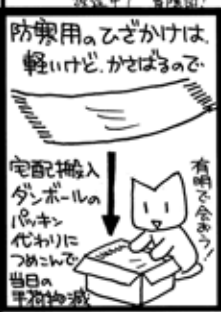 防寒用のひざかけは、
軽いけど、かさばるので
宅配搬入
ダンボールの
パッキン
代わりに
つめこんで
当日の
手荷物減
有明で会おう!